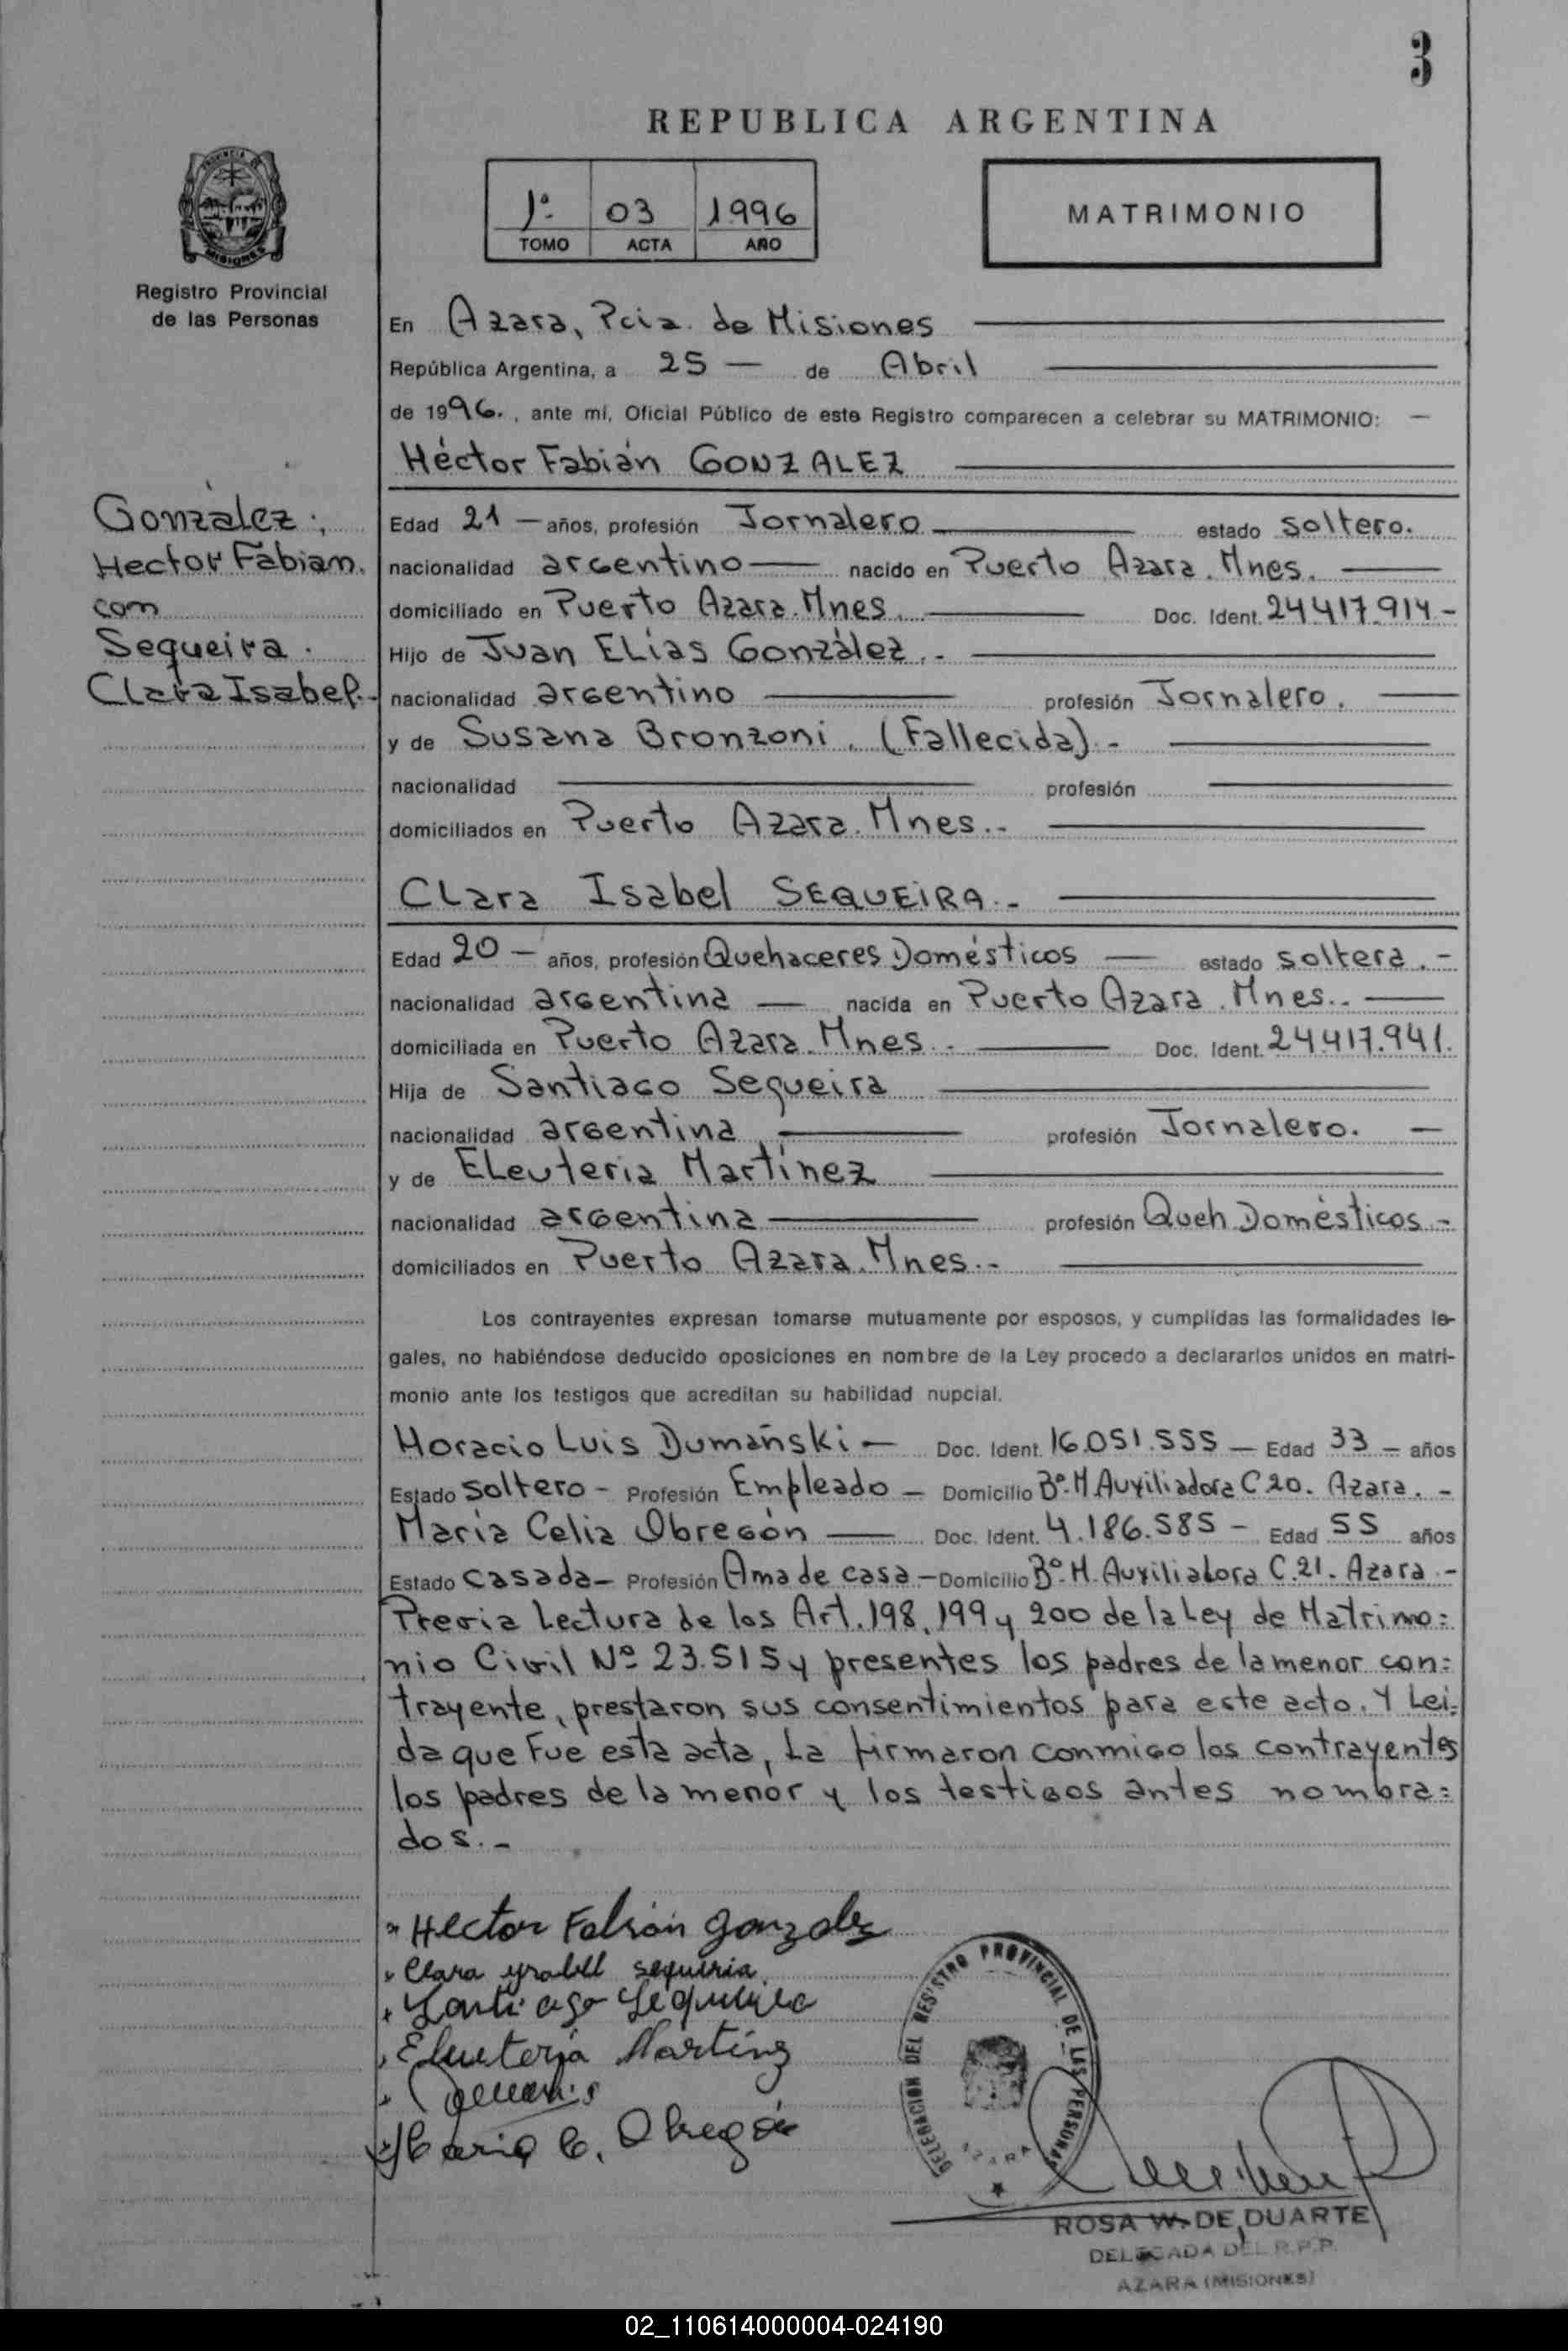 3
REPUBLICA ARGENTINA
PROVINCIA DE
MISIONES
Registro Provincial
de las Personas
1º- 03 1996
TOMO ACTA AÑO
MATRIMONIO
En Azara, Pcia. de Misiones
República Argentina, a 25 — de Abril
de 1996., ante mí, Oficial Público de este Registro comparecen a celebrar su MATRIMONIO: —
Héctor Fabián GONZALEZ
González;
Hector Fabian.
con
Sequeira.
Clara Isabel.-
Edad 21 — años, profesión Jornalero estado soltero.
nacionalidad argentino — nacido en Puerto Azara. Mnes.
domiciliado en Puerto Azara. Mnes. Doc. Ident. 24.417.914-
Hijo de Juan Elías González.-
nacionalidad argentino profesión Jornalero.
y de Susana Bronzoni. (Fallecida).-
nacionalidad profesión
domiciliados en Puerto Azara. Mnes.-
Clara Isabel SEQUEIRA.-
Edad 20 — años, profesión Quehaceres Domésticos — estado soltera.-
nacionalidad argentina — nacida en Puerto Azara. Mnes..-
domiciliada en Puerto Azara. Mnes.- Doc. Ident. 24.417.941.
Hija de Santiago Sequeira
nacionalidad argentina profesión Jornalero. —
y de Eleuteria Martínez
nacionalidad argentina profesión Queh. Domésticos.-
domiciliados en Puerto Azara. Mnes.-
Los contrayentes expresan tomarse mutuamente por esposos, y cumplidas las formalidades le-
gales, no habiéndose deducido oposiciones en nombre de la Ley procedo a declararlos unidos en matri-
monio ante los testigos que acreditan su habilidad nupcial.
Horacio Luis Dumañski — Doc. Ident. 16.051.555 — Edad 33 — años
Estado soltero - Profesión Empleado — Domicilio Bº. M. Auxiliadora C 20. Azara.-
María Celia Obregón — Doc. Ident. 4.186.585 - Edad 55 años
Estado casada - Profesión Ama de casa - Domicilio Bº. M. Auxiliadora C.21. Azara.-
Previa lectura de los Art. 198, 199 y 200 de la Ley de Matrimo=
nio Civil Nº 23.515 y presentes los padres de la menor con=
trayente, prestaron sus consentimientos para este acto. Y Lei=
da que fue esta acta, la firmaron conmigo los contrayentes
los padres de la menor y los testigos antes nombra=
dos.-
Hector Fabián Gonzalez
Clara ysabel sequeria
Santiago Sequeira
Eleuteria Martínz
Maria C. Obregón
DELEGACION DEL REGISTRO PROVINCIAL DE LAS PERSONAS
AZARA
ROSA W. DE DUARTE
DELEGADA DEL R.P.P.
AZARA (MISIONES)
02_110614000004-024190